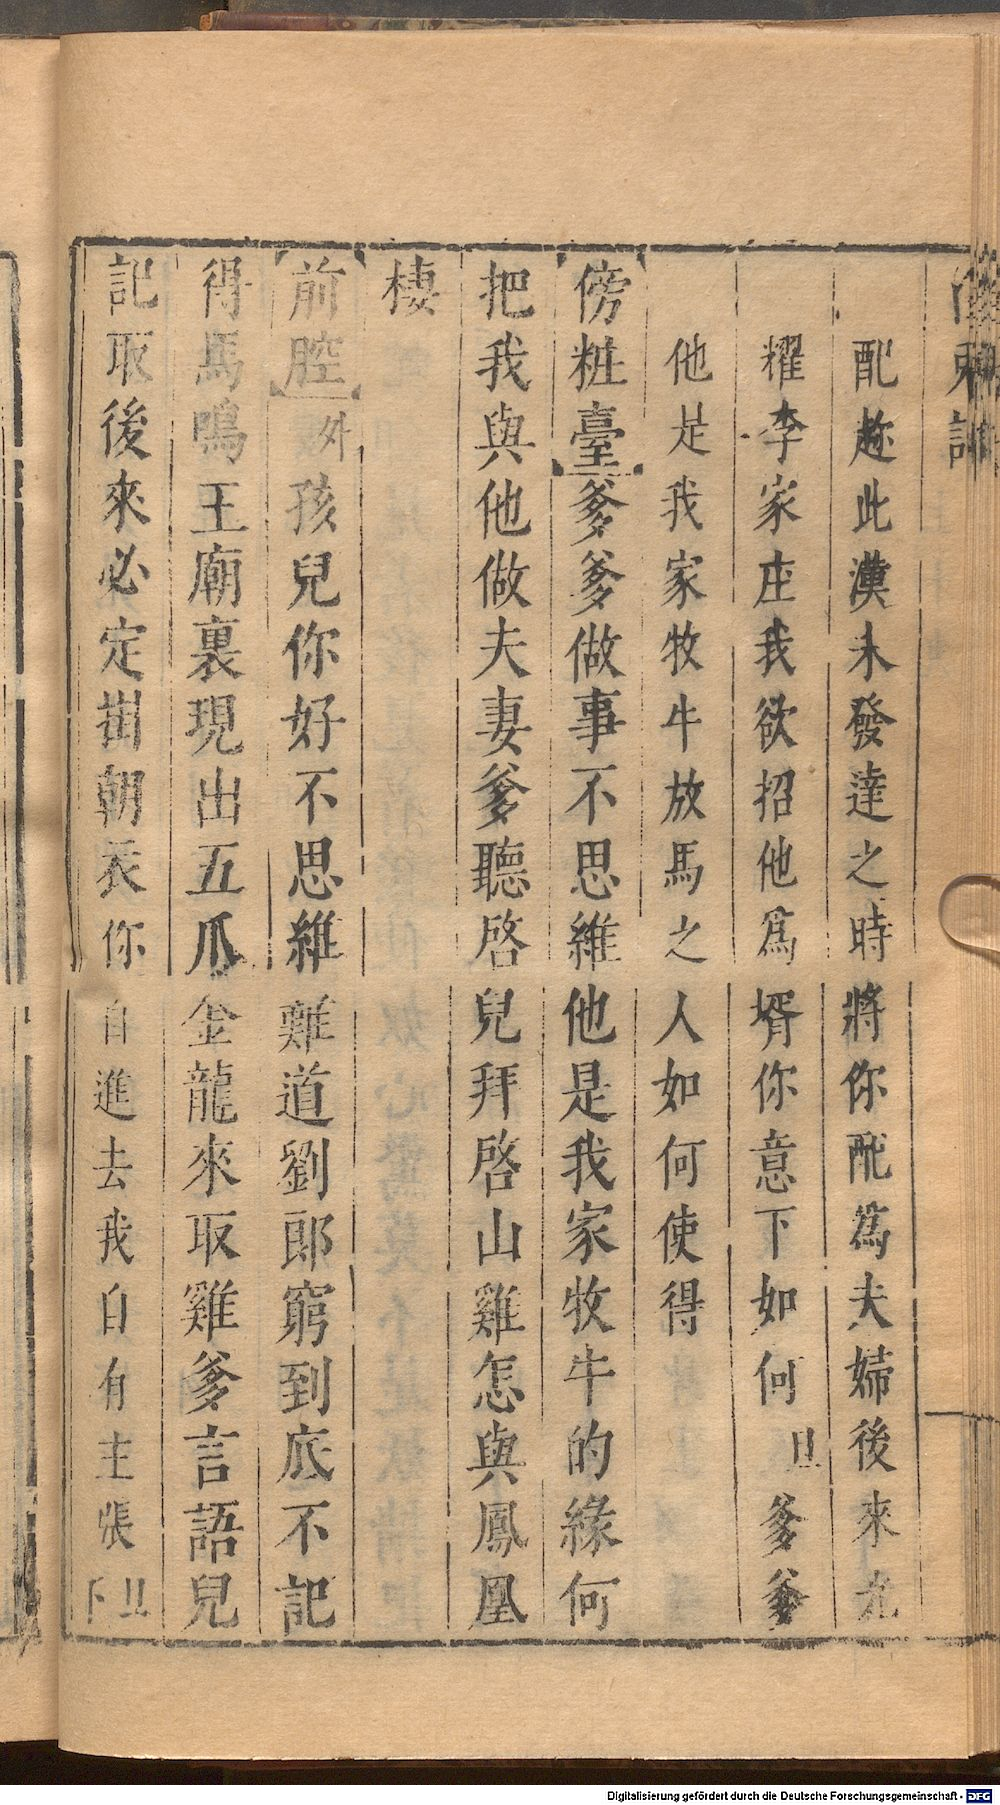 配趂此漢未發達之時將你配為夫婦後來光
耀李家庄我欲招他為壻你意下如何旦爹爹
他是我家牧牛放馬之人如何使得
傍粧臺爹爹做事不思維他是我家牧牛的緣何
把我與他做夫妻爹聽啓兒拜啓山雞怎與鳳凰
棲
前腔外孩兒你好不思維難道劉郎窮到底不記
得馬鳴王廟裏現出五爪金龍來取雞爹言語兒
記取後來必定掛朝衣你自進去我自有主張旦下
Digitalisierung gefördert durch die Deutsche Forschungsgemeinschaft - DFG